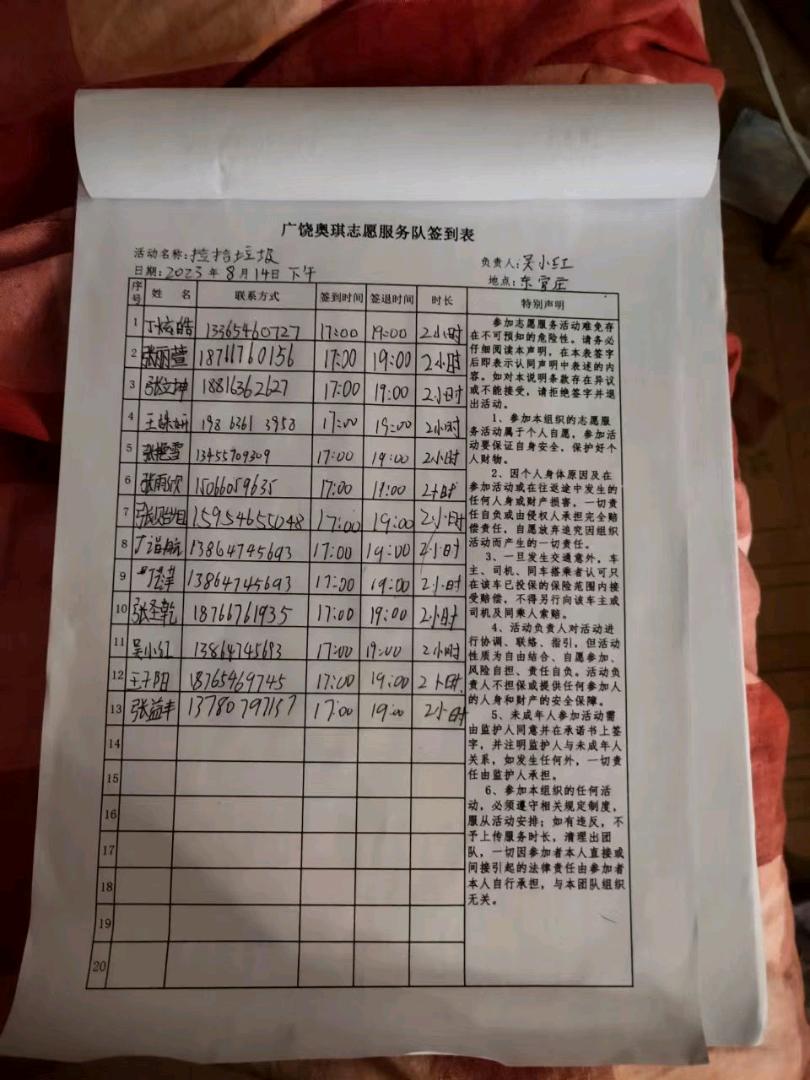 广饶奥琪志愿服务队签到表
活动名称:捡拾垃圾
负责人:吴小红
日期:2023年8月14日下午
地点:东官庄
序号 姓 名 联系方式 签到时间 签退时间 时长 特别声明
1 丁炫皓 13365460727 17:00 19:00 2小时
2 张丽萱 18711760156 17:00 19:00 2小时
3 张立坤 18816362627 17:00 19:00 2小时
4 王姝妍 198 6361 3958 17:00 19:00 2小时
5 张艳雪 13455709309 17:00 19:00 2小时
6 张雨欣 15066059635 17:00 19:00 2小时
7 15954655048 17:00 19:00 2小时
8 13864745693 17:00 19:00 2小时
9 13864745693 17:00 19:00 2小时
10 张圣乾 18766761935 17:00 19:00 2小时
11 吴小红 13864745693 17:00 19:00 2小时
12 王子阳 18765469745 17:00 19:00 2小时
13 张益丰 13780797157 17:00 19:00 2小时
14
15
16
17
18
19
20
参加志愿服务活动难免存
在不可预知的危险性。请务必
仔细阅读本声明,在本表签字
后即表示认同声明中表述的内
容。如对本说明条款存在异议
或不能接受,请拒绝签字并退
出活动。
1、参加本组织的志愿服
务活动属于个人自愿。参加活
动要保证自身安全,保护好个
人财物。
2、因个人身体原因及在
参加活动或在往返途中发生的
任何人身或财产损害,一切责
任自负或由侵权人承担完全赔
偿责任,自愿放弃追究因组织
活动而产生的一切责任。
3、一旦发生交通意外,车
主、司机、同车搭乘者认可只
在该车已投保的保险范围内接
受赔偿,不得另行向该车主或
司机及同乘人索赔。
4、活动负责人对活动进
行协调、联络、指引,但活动
性质为自由结合、自愿参加、
风险自担、责任自负。活动负
责人不担保或提供任何参加人
的人身和财产的安全保障。
5、未成年人参加活动需
由监护人同意并在承诺书上签
字,并注明监护人与未成年人
关系,如发生任何外,一切责
任由监护人承担。
6、参加本组织的任何活
动,必须遵守相关规定制度,
服从活动安排;如有违反,不
予上传服务时长,清理出团
队,一切因参加者本人直接或
间接引起的法律责任由参加者
本人自行承担,与本团队组织
无关。